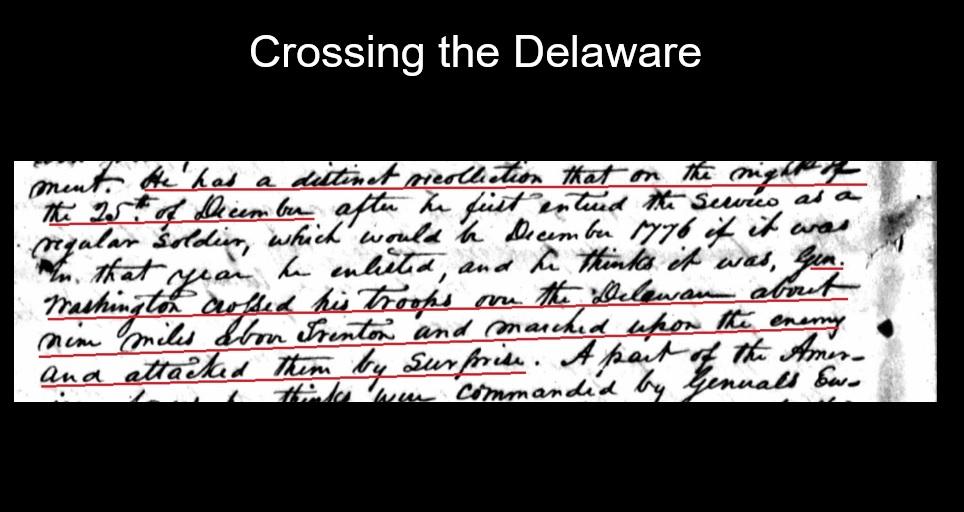 Crossing the Delaware
ment. He has a distinct recollection that on the night of
the 25th. of December after he first entered the service as a
regular soldier, which would be December 1776 if it was
in that year he enlisted, and he thinks it was, Gen.
Washington crossed his troops over the Delaware about
nine miles above Trenton and marched upon the enemy
and attacked them by surprise. A part of the Amer-
thinks were commanded by Generals Ew-